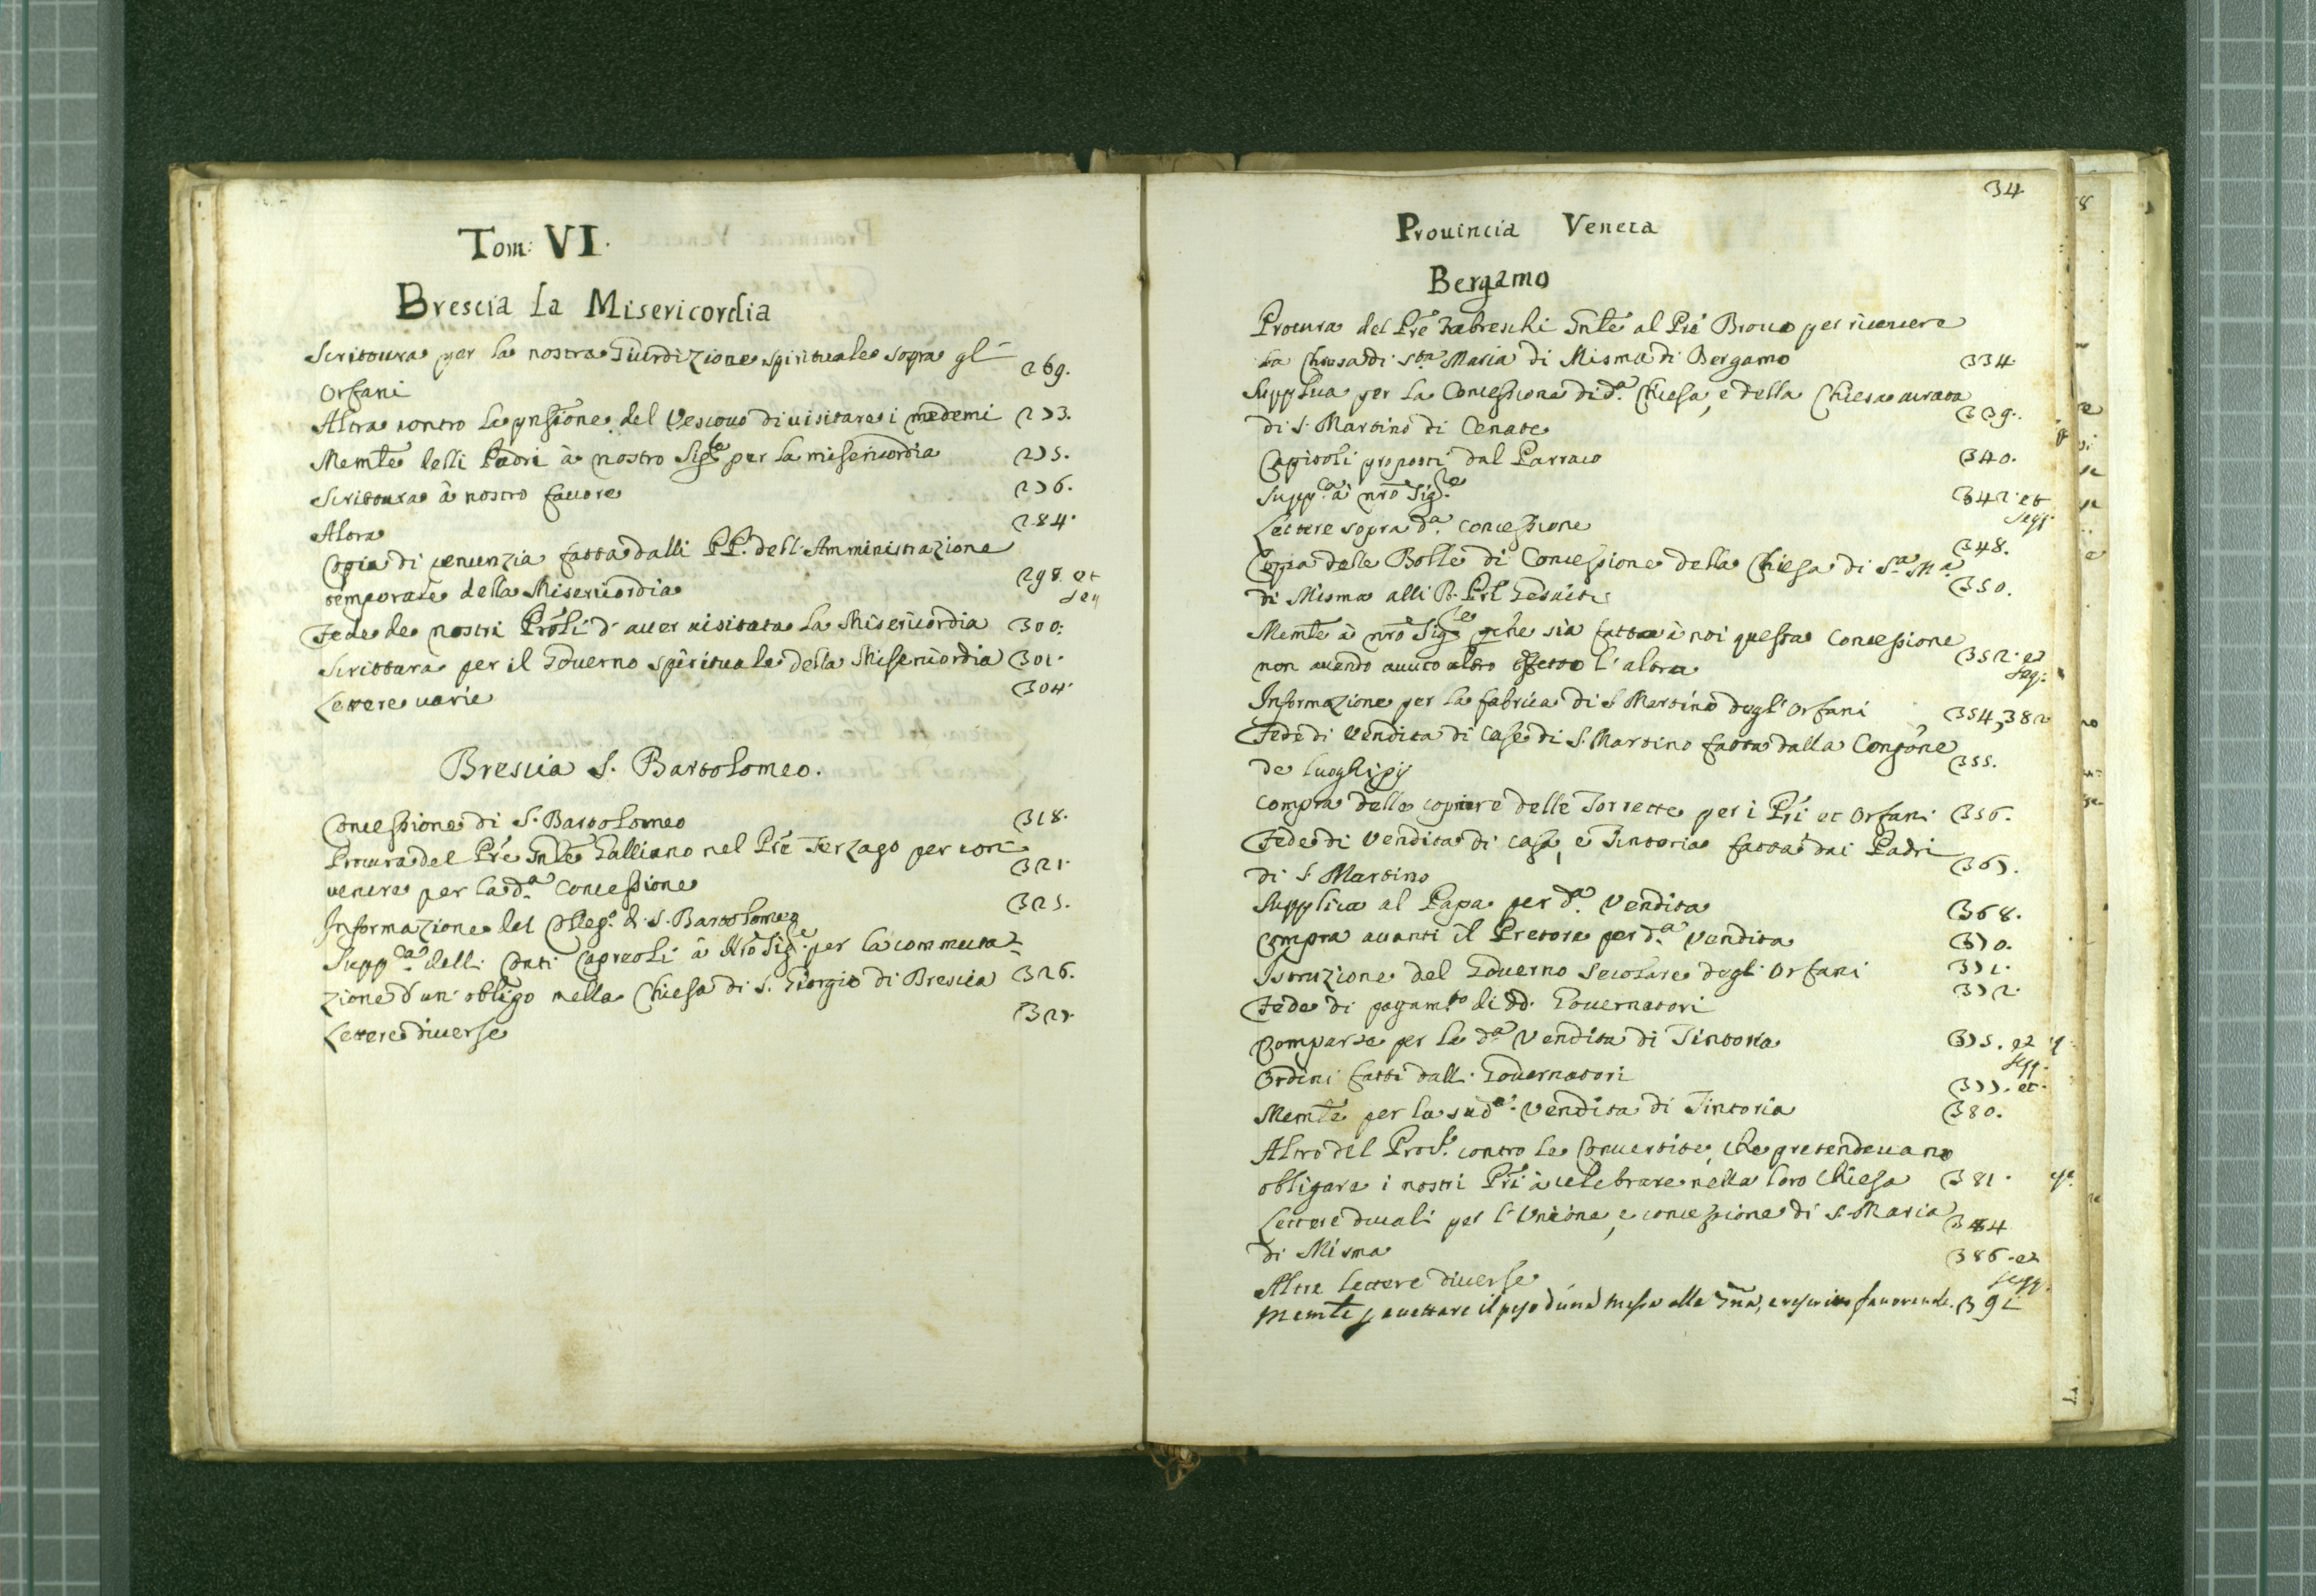 Tom: VI.
Brescia La Misericordia
Scrittura per la nostra Giurdizione spirituale sopra gl'
Orfani 269.
Altra contro la pnsione del Vescovo di uisitare i medemi 273.
Memle delli Padri à nostro Sigre per la misericordia 275.
Scrittura à nostro fauore 276.
Altra 284.
Copia di renunzia fatta dalli PP. dell'Amministrazione
temporale della Misericordia 298. et seq
Fede de nostri Prôli d'auer uisitata la Misericordia 300.
Scrittura per il Gouerno spirituale della Misericordia 301.
Lettere uarie 304.
Brescia S. Bartolomeo.
Concessione di S. Bartolomeo 318.
Procura del Pre Gnle Galliano nel Pre Terzago per con-
uenire per la da Concessione 321.
Informazione del Colleg. di S. Bartolomeo 325.
Suppca delli Conti Capreoli à Nro Sigre per la commuta-
zione d'un obligo nella Chiesa di S. Giorgio di Brescia 326.
Lettere diuerse 327.
34.
Prouincia Veneta
Bergamo
Procura del Pre Fabreschi Gnle al Pre Brocco per riceuere
la Chiesa di Sta Maria di Misma di Bergamo 334.
Supplica per la Concessione di da Chiesa, e della Chiesa curata
di S. Martino di Cenate 339.
Capitoli proposti dal Parraco 340.
Suppca à nro Sigre 342. et seqq.
Lettere sopra da Concessione 348.
Copia delle Bolle di Concessione della Chiesa di Sa Ma
di Misma alli R. Pri Gesuiti 350.
Memle à nro Sigre che sia fatta à noi questa Concessione
non auendo auuto altro effetto l'altra 352. et seq.
Informazione per la fabrica di S Martino degl'Orfani 354, 382
Fede di Vendita di Case di S. Martino fatta dalla Congone
de luoghi pij 355.
Compra delle delle Torrette per i Pri et Orfani 356.
Fede di Vendita di Casa, e Tintoria fatta dai Padri
di S Martino 367.
Supplica al Papa per da Vendita 368.
Compra auanti il Pretore per da Vendita 370.
Istruzione del Gouerno Secolare degli Orfani 371.
Fede di pagamto di dd. Gouernatori 372.
Comparsa per la da Vendita di Tintoria 375. et seqq.
Ordini fatti dalli Gouernatori 377. et
Memle per la suda Vendita di Tintoria 380.
Altro del Proule contro le Conuertite, che pretendeuano
obligare i nostri Pri à celebrare nella loro Chiesa 381.
Lettere ducali per l'Unione, e concessione di S. Maria
di Misma 384
Altre lettere diuerse 386. et seqq.
Memle p accettare il peso d'una Messa alla Gna, e rescritto fauoreuole. 391